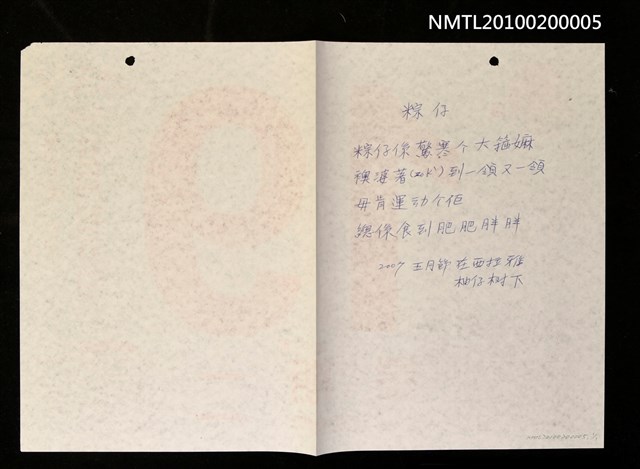 NMTL20100200005
粽仔
粽仔係驚寒个大箍嫲
襖婆著(zok`)到一領又一領
毋肯運动个佢
總係食到肥肥胖胖
2007 五月節在西拉雅
柚仔树下